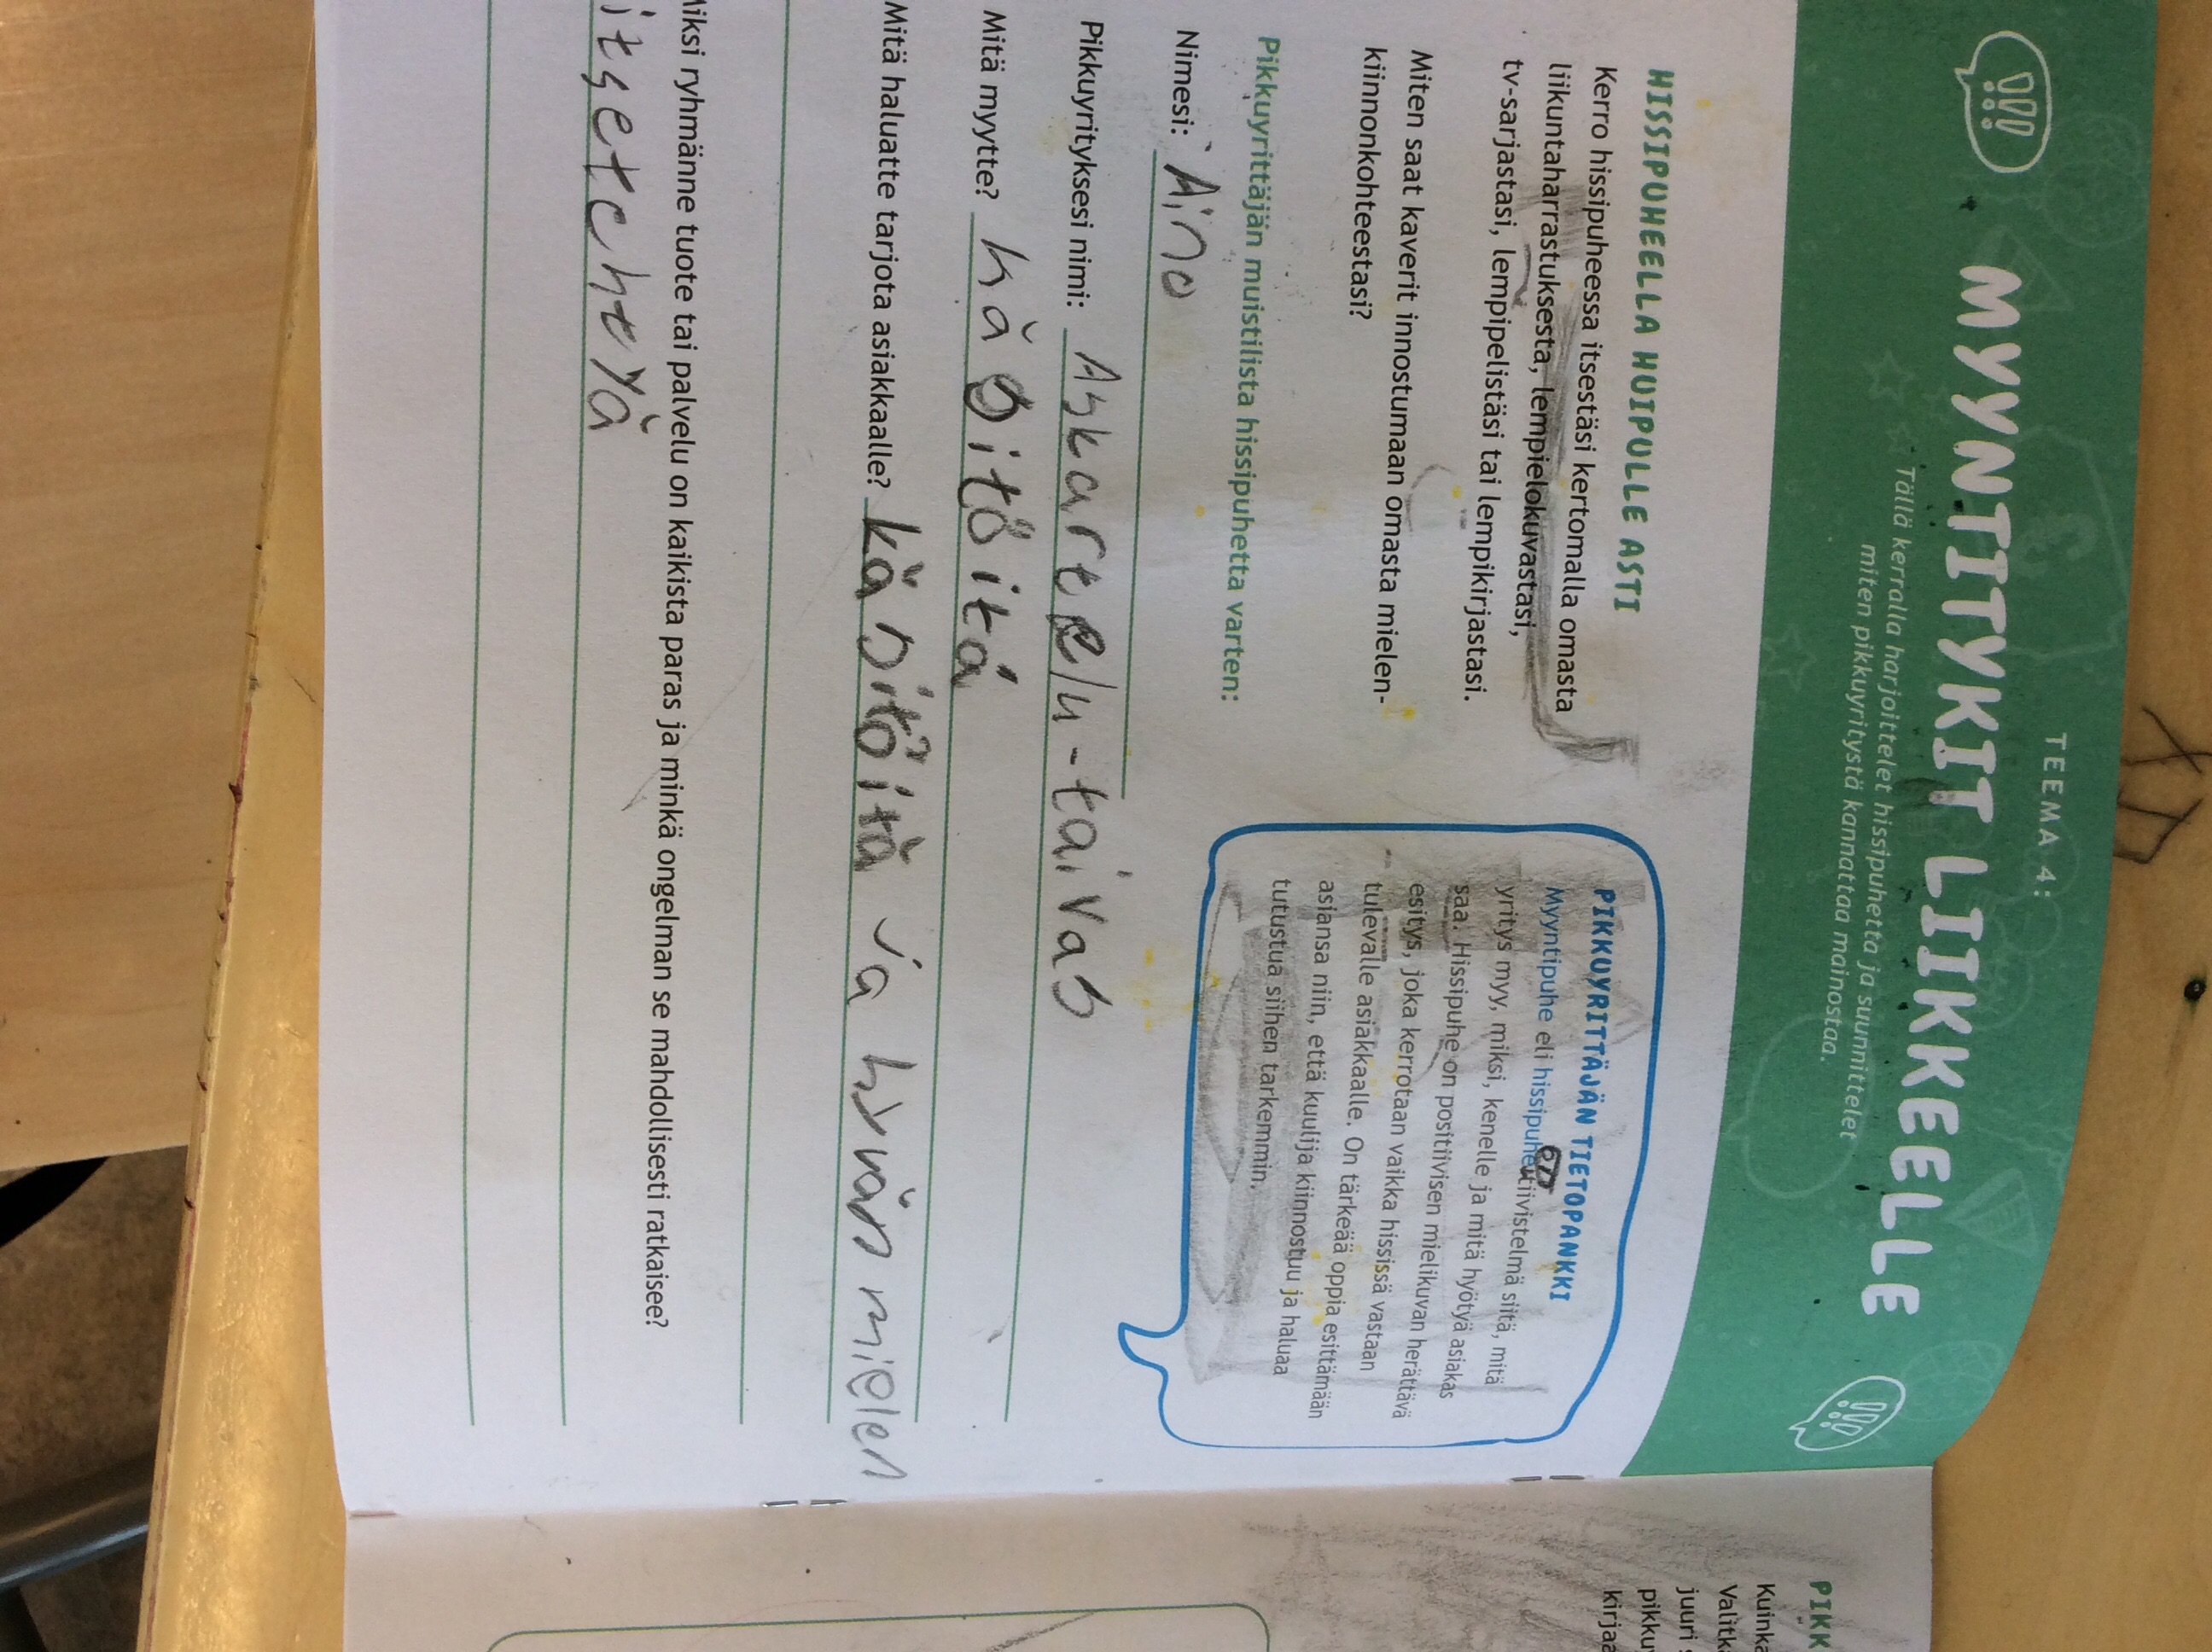 TEEMA 4:
MYYNTITYKIT LIIKKEELLE
Tällä kerralla harjoittelet hissipuhetta ja suunnittelet
miten pikkuyritystä kannattaa mainostaa.
HISSIPUHEELLA HUIPULLE ASTI
Kerro hissipuheessa itsestäsi kertomalla omasta
liikuntaharrastuksesta, lempielokuvastasi,
tv-sarjastasi, lempipelistäsi tai lempikirjastasi.
Miten saat kaverit innostumaan omasta mielen-
kiinnonkohteestasi?
PIKKUYRITTÄJÄN TIETOPANKKI
Myyntipuhe eli hissipuhe on tiivistelmä siitä, mitä
yritys myy, miksi, kenelle ja mitä hyötyä asiakas
saa. Hissipuhe on positiivisen mielikuvan herättävä
esitys, joka kerrotaan vaikka hississä vastaan
tulevalle asiakkaalle. On tärkeää oppia esittämään
asiansa niin, että kuulija kiinnostuu ja haluaa
tutustua siihen tarkemmin.
Pikkuyrittäjän muistilista hissipuhetta varten:
Nimesi: Aino
Pikkuyrityksesi nimi: Askartelu-taivas
Mitä myytte? käsitöitä
Mitä haluatte tarjota asiakkaalle? käsitöitä ja hyvän mielen
Miksi ryhmänne tuote tai palvelu on kaikista paras ja minkä ongelman se mahdollisesti ratkaisee?
itsetehtyä
PIKK
Kuinka
Valitk
juuri s
pikku
kirjaa